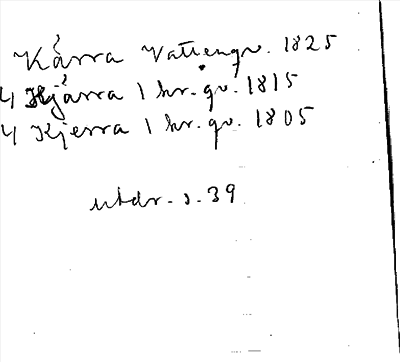 Kårra Vattenqv. 1825
4 Kjårra 1 kr. qv. 1815
4 Kjerra 1 kr. qv. 1805
utdr. s. 39